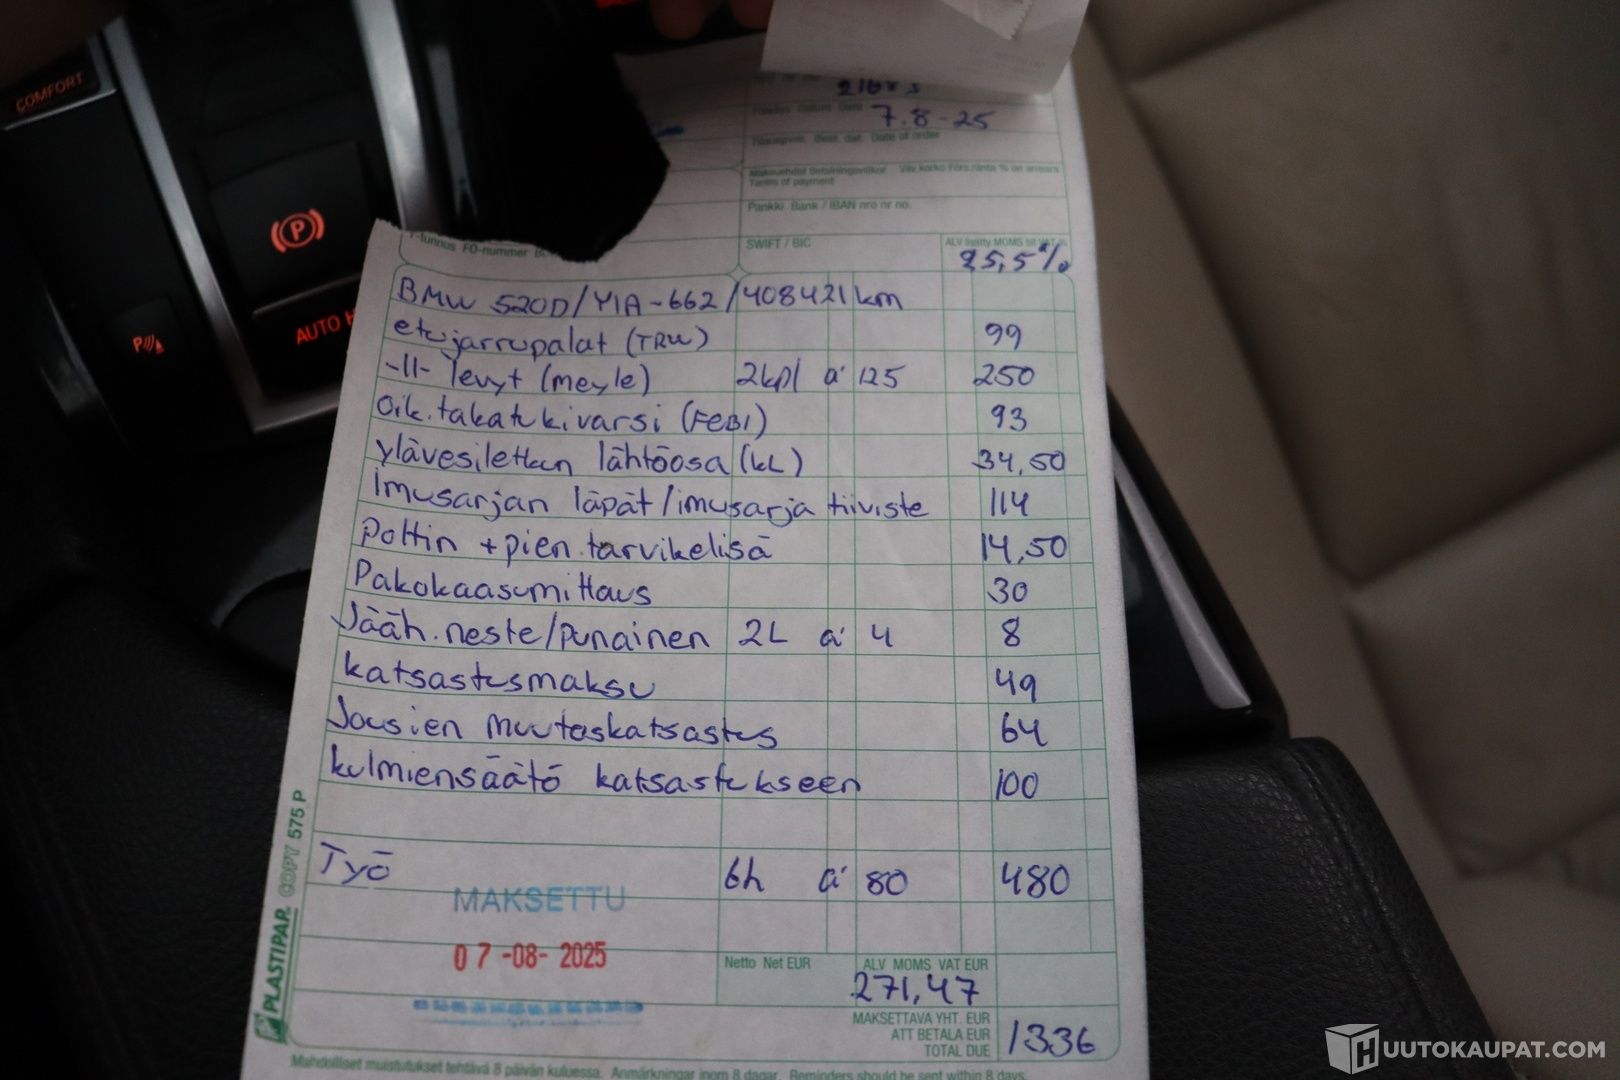 COMFORT
P
AUTO H
P
7.8-25
Tilauspvm. Best. dat. Date of order
Maksuehdot Betalningsvillkor Viiv.korko Förs.ränta % on arrears
Terms of payment
Pankki Bank / IBAN nro nr no.
Y-tunnus FO-nummer
SWIFT / BIC
ALV lisätty MOMS till VAT %
25,5%
BMW 520D/YIA-662/408421km
etujarrupalat (TRW) 99
-11- levyt (meyle) 2kpl á 125 250
Oik.takatukivarsi (FEBI) 93
ylävesiletkun lähtöosa (KL) 34,50
Imusarjan läpät/imusarja tiiviste 114
Polttin +pien.tarvikelisä 14,50
Pakokaasumittaus 30
Jääh.neste/punainen 2L á 4 8
katsastusmaksu 49
Jousien muutoskatsastus 64
kulmiensäätö katsastukseen 100
Työ 6h á 80 480
MAKSETTU
07-08-2025
Netto Net EUR
ALV MOMS VAT EUR
271,47
MAKSETTAVA YHT. EUR
ATT BETALA EUR
TOTAL DUE
1336
PLASTIPAP. COPY 575 P
Mahdolliset muistutukset tehtävä 8 päivän kuluessa. Anmärkningar inom 8 dagar. Reminders should be sent within 8 days.
HUUTOKAUPAT.COM